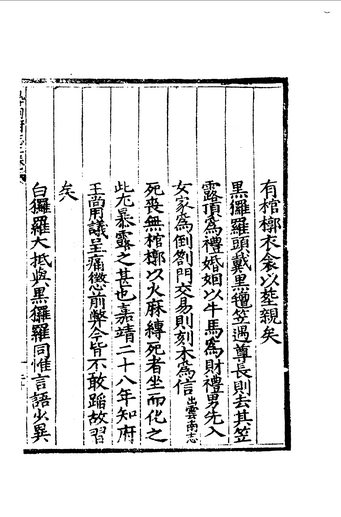 有棺槨衣衾以葬親矣
黑玀羅頭戴黑氊笠遇尊長則去其笠
露頂為禮婚姻以牛馬為財禮男先入
女家為倒劄門交易則刻木為信出雲南志
死喪無棺槨以火麻縛死者坐而化之
此尤暴露之甚也嘉靖二十八年知府
王尚用議呈痛懲前弊今皆不敢踏故習
矣
白玀羅大抵與黑玀羅同惟言語少異